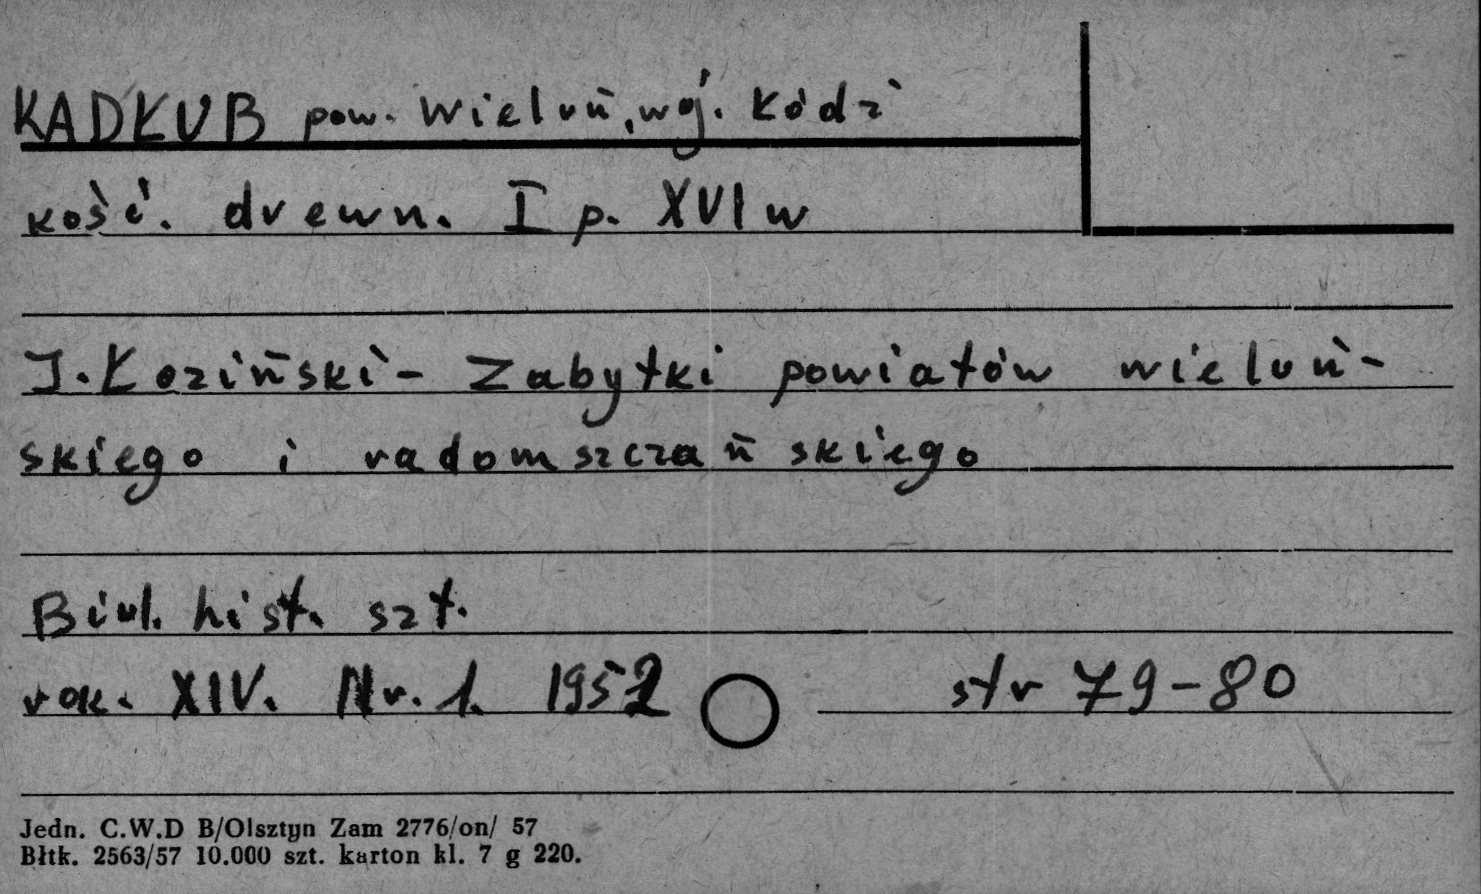 KADŁUB pow. Wieluń, woj. Łódź
kość. drewn. I p. XVI w
J. Łoziński - Zabytki powiatów wieluń-
skiego i radomszczańskiego
Biul. hist. szt.
rok. XIV. Nr. 1. 1952 str 79-80
Jedn. C.W.D B/Olsztyn Zam 2776/on/ 57
Błtk. 2563/57 10.000 szt. karton kl. 7 g 220.